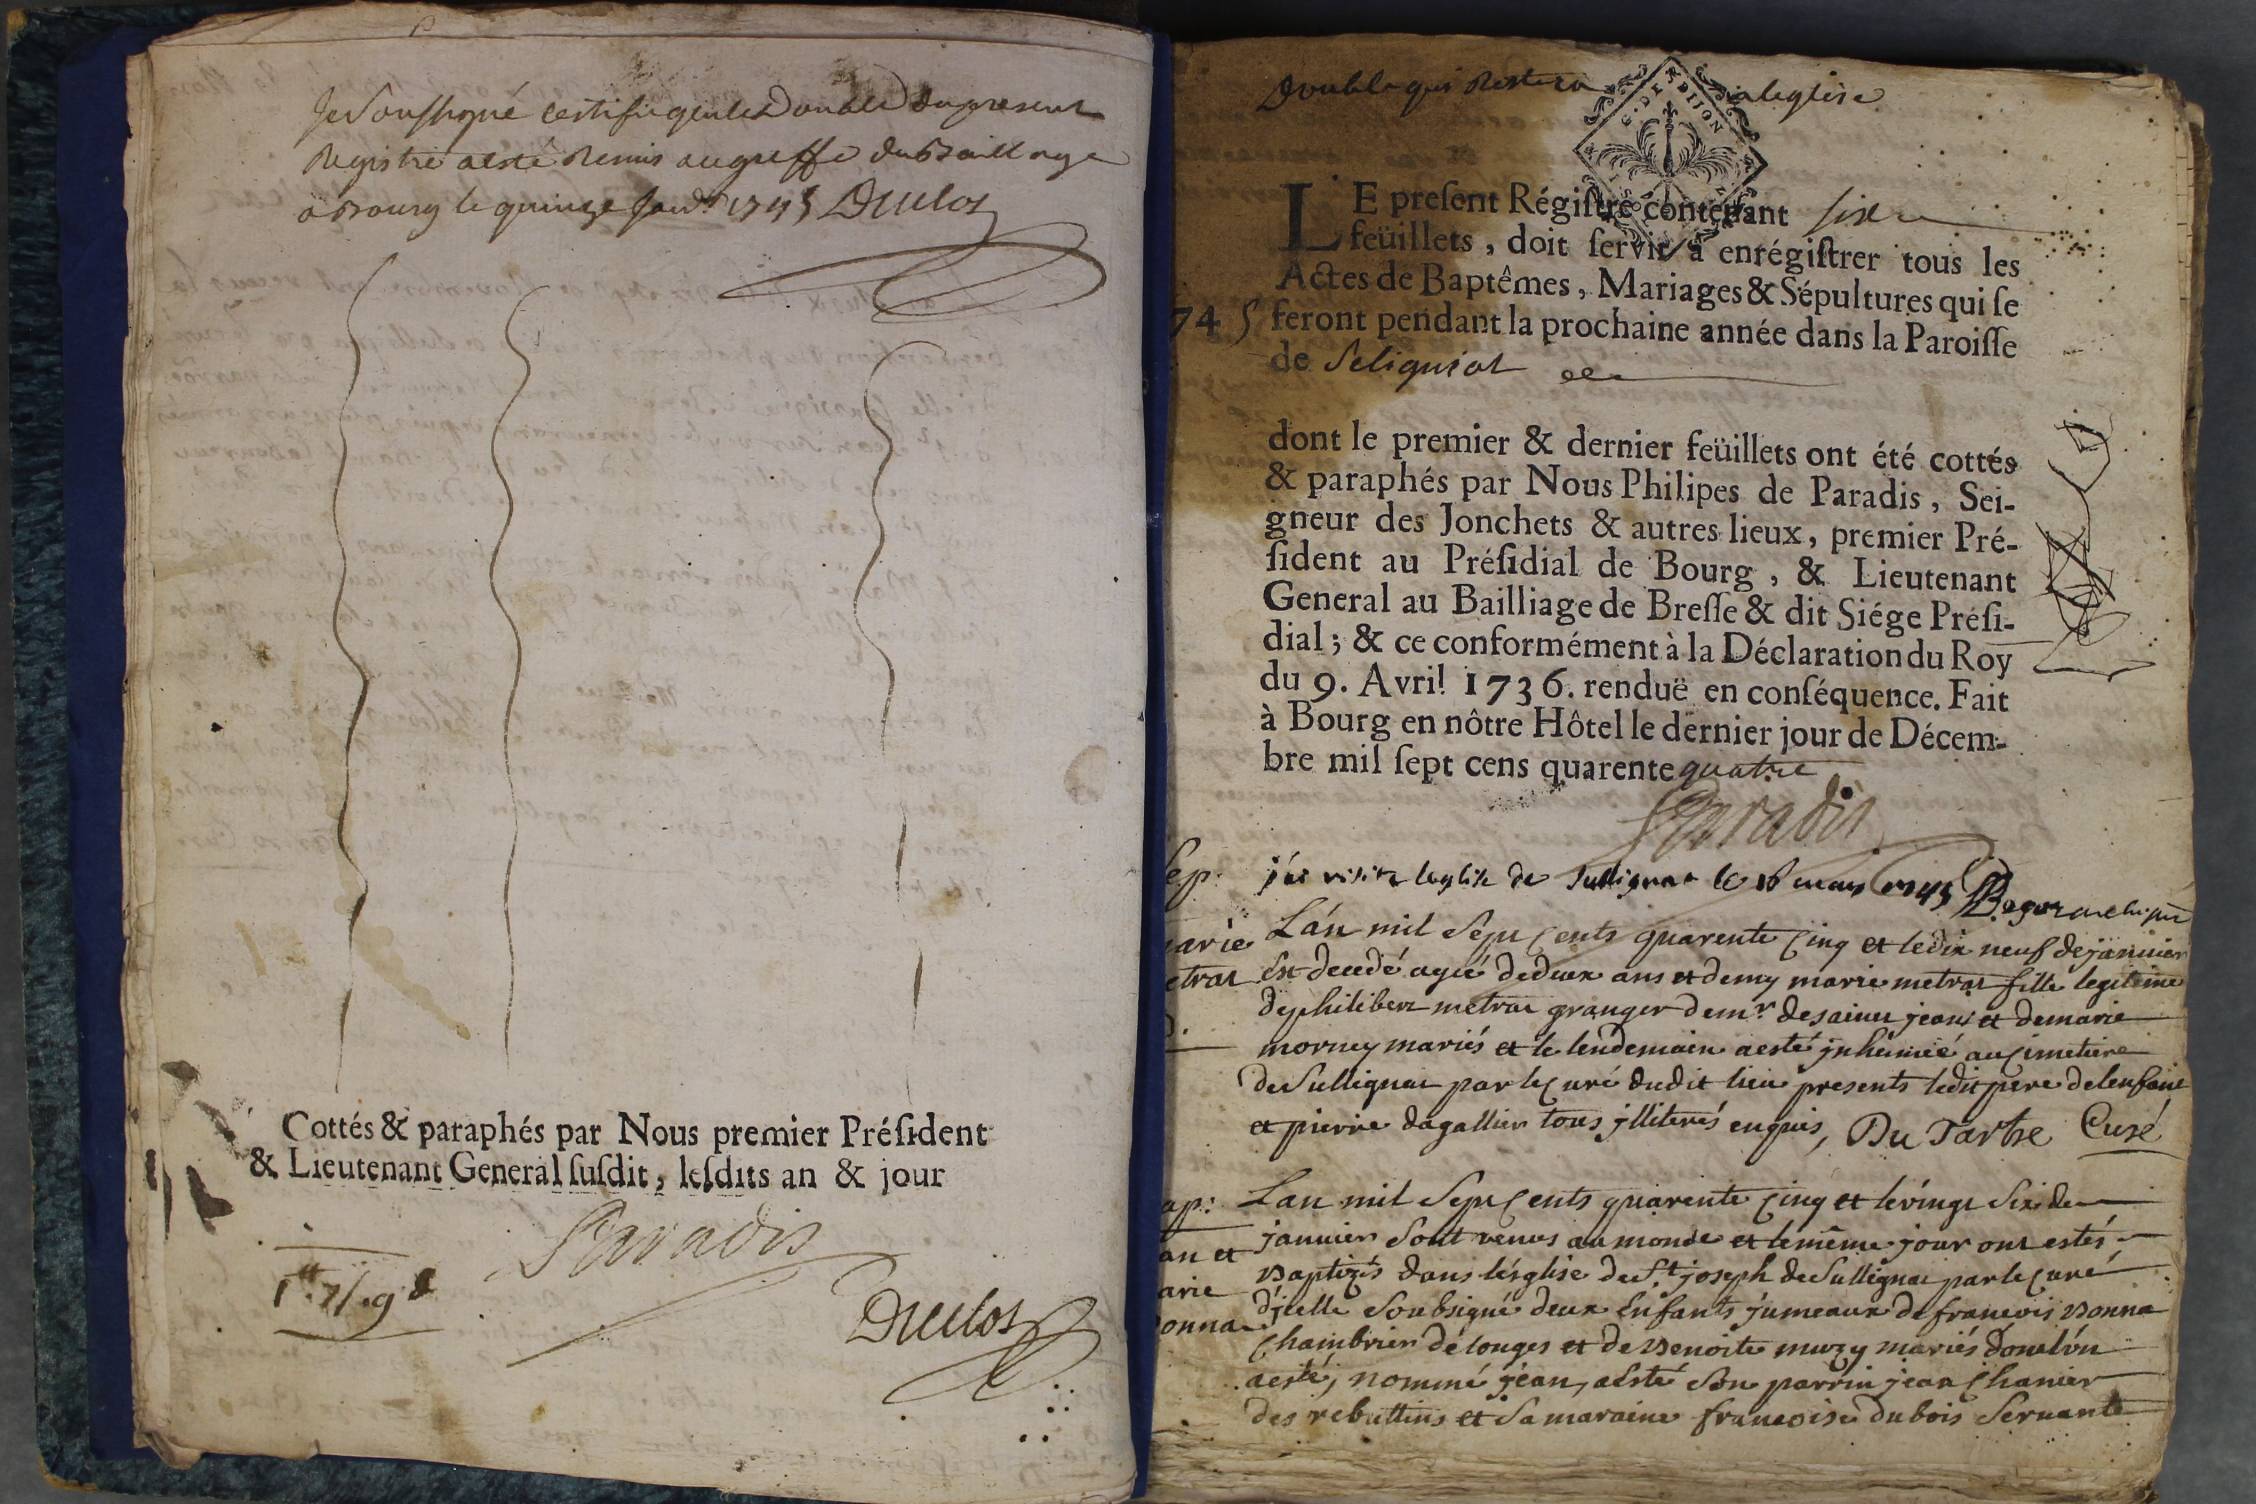 Je Soussigné certifie que le Double du present
Registre a esté Remis au greffe du Bailliage
a Bourg le quinze Janv.r 1745 Duclos
Cottés & paraphés par Nous premier Préſident
& Lieutenant General ſuſdit, leſdits an & jour
Paradis
Duclos
Double qui Restera a leglise
G. DE DIJON
LE preſent Régiſtre contenant six
feüillets, doit ſervir à enrégiſtrer tous les
Actes de Baptêmes, Mariages & Sépultures qui ſe
745 feront pendant la prochaine année dans la Paroiſſe
de Seligniat
dont le premier & dernier feüillets ont été cottés
& paraphés par Nous Philipes de Paradis, Sei-
gneur des Jonchets & autres lieux, premier Pré-
ſident au Préſidial de Bourg, & Lieutenant
General au Bailliage de Breſſe & dit Siége Préſi-
dial; & ce conformément à la Déclaration du Roy
du 9. Avril 1736. renduë en conſéquence. Fait
à Bourg en nôtre Hôtel le dernier jour de Décem-
bre mil ſept cens quarente quatre
Paradis
ep: j'ai visité leglise de Sullignat le 16 mars 1745
arie L'an mil Sept Cents quarente Cinq et le dix neuf de janvier
etrat Est decedé agée de deux ans et demy marie metrat fille legitime
de philibert metrat granger de mr. de saint jean et de marie
morney mariés et le lendemain a esté jnhumée au Cimetiere
de Sullignat par le Curé dudit lieu presents ledit pere de lenfant
et pierre dagallier tous jlliterés enquis, Du Tartre Curé
ap: L'an mil Sept Cents quarente Cinq et le vingt Six de
an et janvier Sont venus au monde et le même jour ont estés
Baptizés dans léglise de St. joseph de Sullignat par le Curé
arie d'jcelle Soubsigné deux Enfants jumeaux de francois Donna
onna Chambrier de longes et de Benoite muzy mariés dont l'un
a esté nommé jean, a esté Son parrin jean Chanier
des rebuttins et Sa maraine francoise dubois Servante